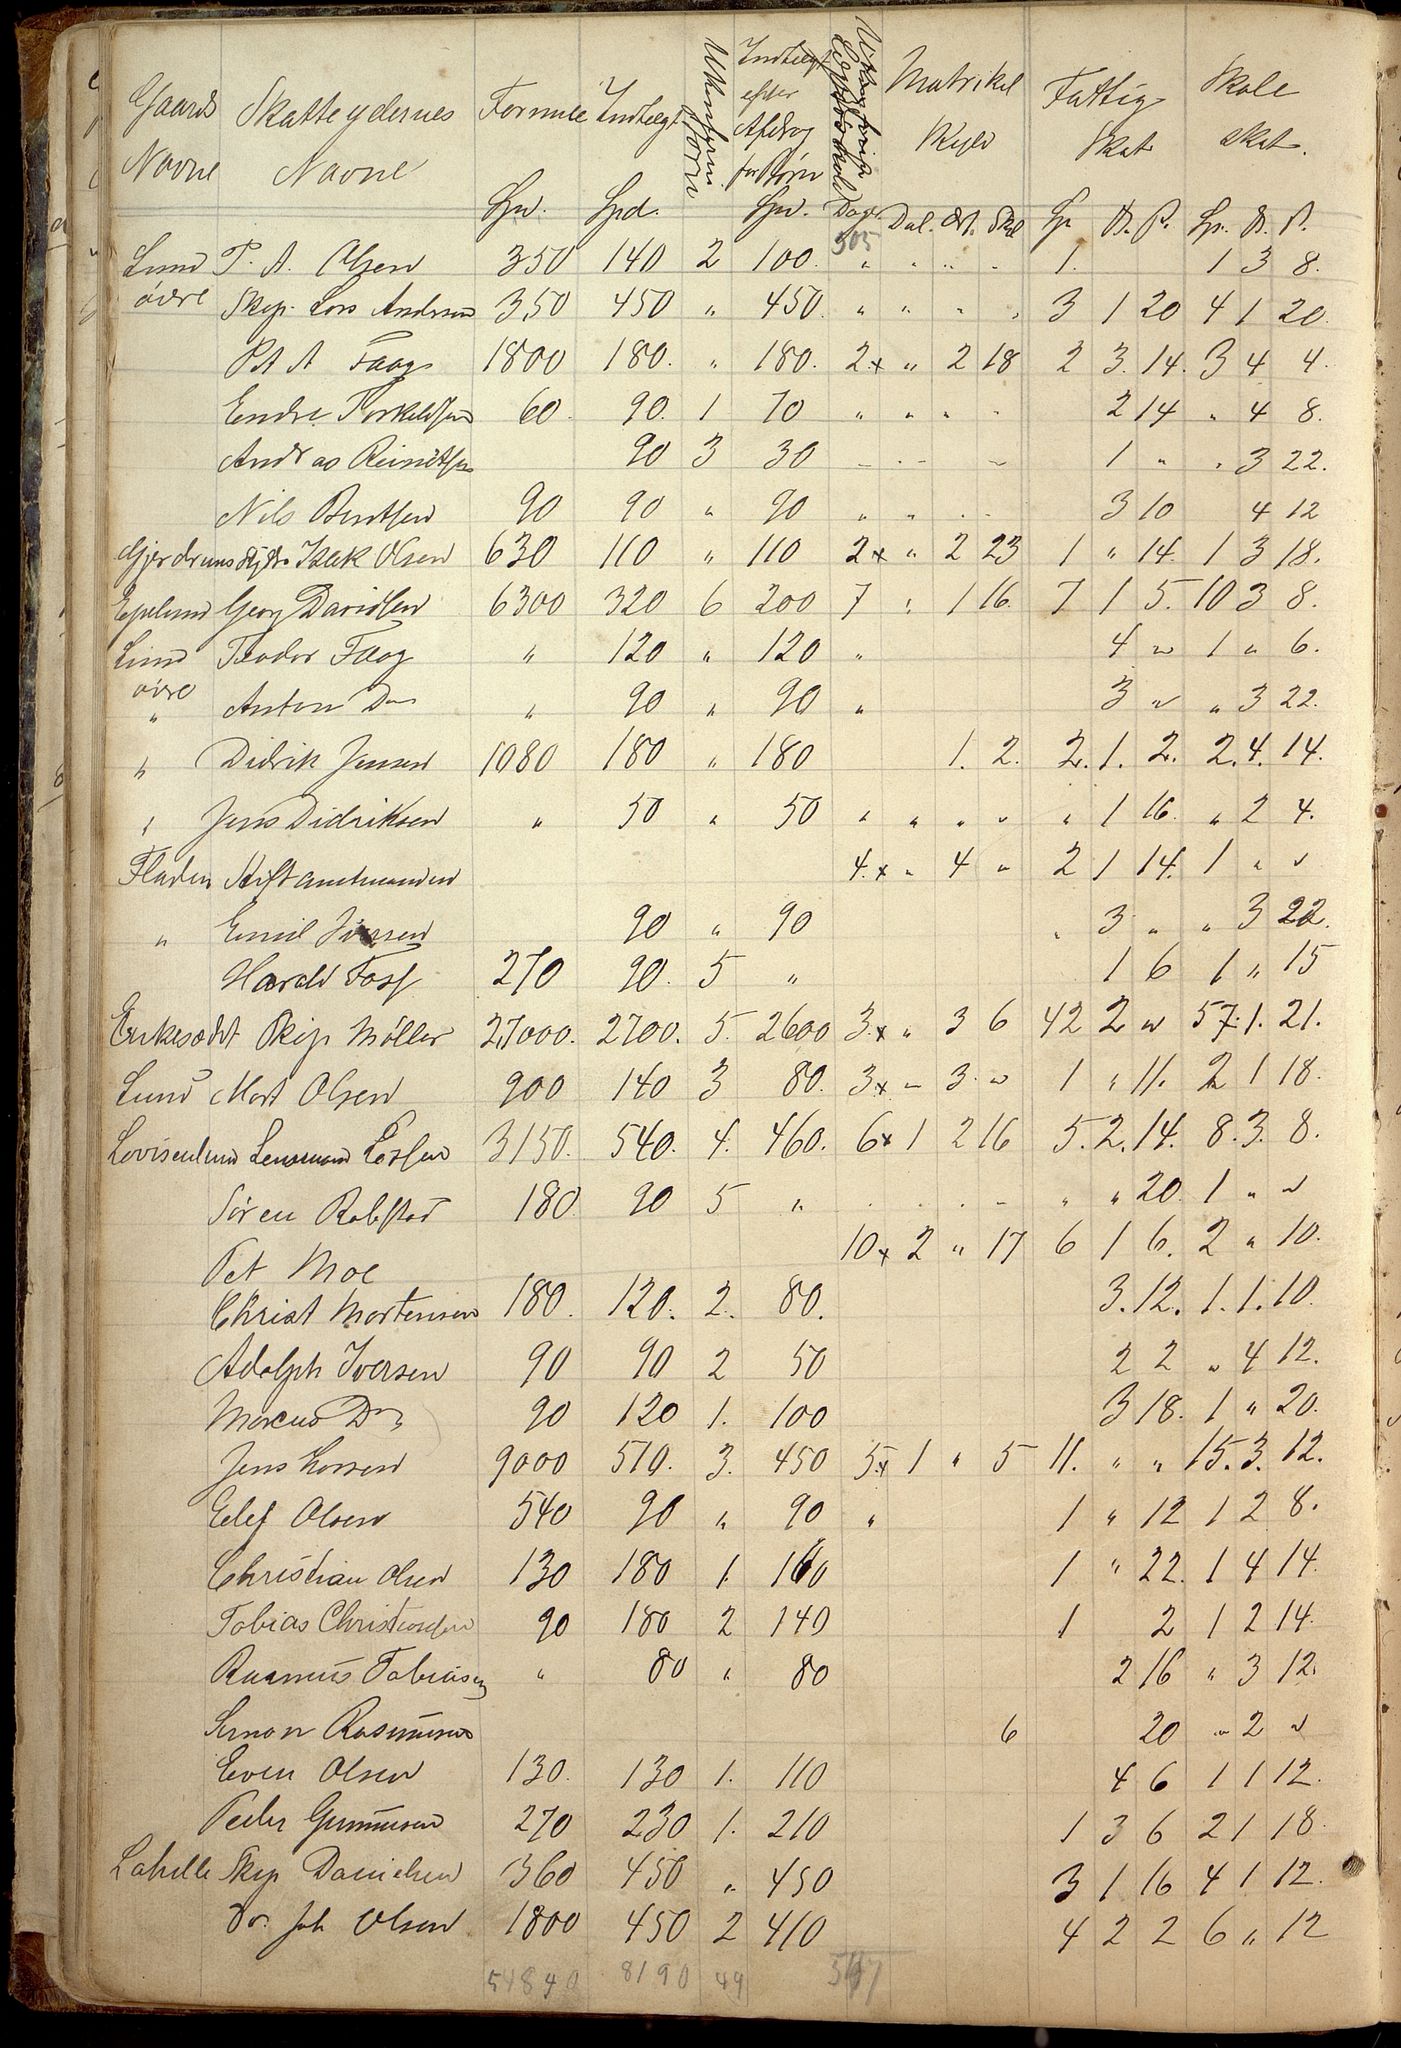 Gaards Navne Skatteydernes Navne Formue Indtægt Børn Indtægt efter Afdrag for Børn Matrikel Skyld Fattig Skat Skole skat.
Spd. Spd. Spd. Dage Dal. Ort. Skil Sp. O. S. Sp. O. S.
505
Lund P. A. Olsen 350 140 2 100. " " " " 1. 1 3 8.
øvre Skip. Lars Andersen 350 450 " 450. " " " " 3 1 20 4 1 20.
P A A Faag 1800 180. " 180. 2x " 2 18 2 3. 14. 3 4 4.
Endre Torkildsen 60. 90. 1 70 " " " " 2 14 " 4 8.
Andras 90 3 30 1 " " 3 22.
Nils Berntsen 90 90 " 90 " " " " 3 10 4 12
Isak Olsen 630 110 " 110 2x " 2 23 1 " 14. 1 3 18.
Eplelund Georg Davidsen 6300 320 6 200 7 " 1 16. 7 1 5. 10 3 8.
Lund Teodor Faag " 120 " 120 " 4 " 1 " 6.
øvre
" Anton Do " 90 " 90 " 3 " " 3 22.
" Didrik Jensen 1080 180 " 180 1. 2. 2. 1. 2. 2. 4. 14.
" Jens Didriksen " 50 " 50 " " " " " 1 16. " 2 4.
Fladen Stiftamtmanden 4.x " 4 " 2 1 14. 1 " "
" Emil Iversen 90 " 90 " 3 " " 3 22.
Harald 270 90. 5 " 1 6 1 " 15
Enkesædet Skip Møller 27000. 2700. 5. 2600 3.x " 3 6 42 2 " 57. 1. 21.
Lund Mort Olsen 900 140 3 80. 3x " 3. " 1 " 11. 2 1 18.
Lovisenlund Lensmand 3150. 540. 4. 460. 6x 1 2 16 5. 2. 14. 8. 3. 8.
Søren 180. 90 5 " " " 20. 1 " "
Pet Moe 10x 2 " 17 6 1 6. 2 " 10.
Christ Mortensen 180. 120. 2. 80. 3. 12. 1. 1. 10.
Adolph Iversen 90 90 2 50 2 2 " 4 12.
Marcus Do 90 120 1. 100 3 18. 1 " 20.
Jens Larsen 9000 510. 3. 450 5x 1 " 5 11. " " 15. 3. 12.
Elef Olsen 540 90 " 90 " 1 " 12 1 2 8.
Christian Olsen 130 180 1. 160 1 " 22. 1 4 14.
Tobias Christiansen 90 180 2 140 1 2 1 2 14.
Rasmus Tobiasen " 80 " 80 2 16 " 3 12.
Simon Rasmussen 6 20 " 2 "
Even Olsen 130. 130 1. 110 4 6 1 1 12.
Peder Gunnersen 270 230 1. 210 1 3 6 2 1 18.
Lahelle Skip Danielsen 360 450 " 450 3 1 16 4 1 12.
Do. Joh Olsen 1800 450 2 410 4 2 2 6 " 12
54840 8190 49